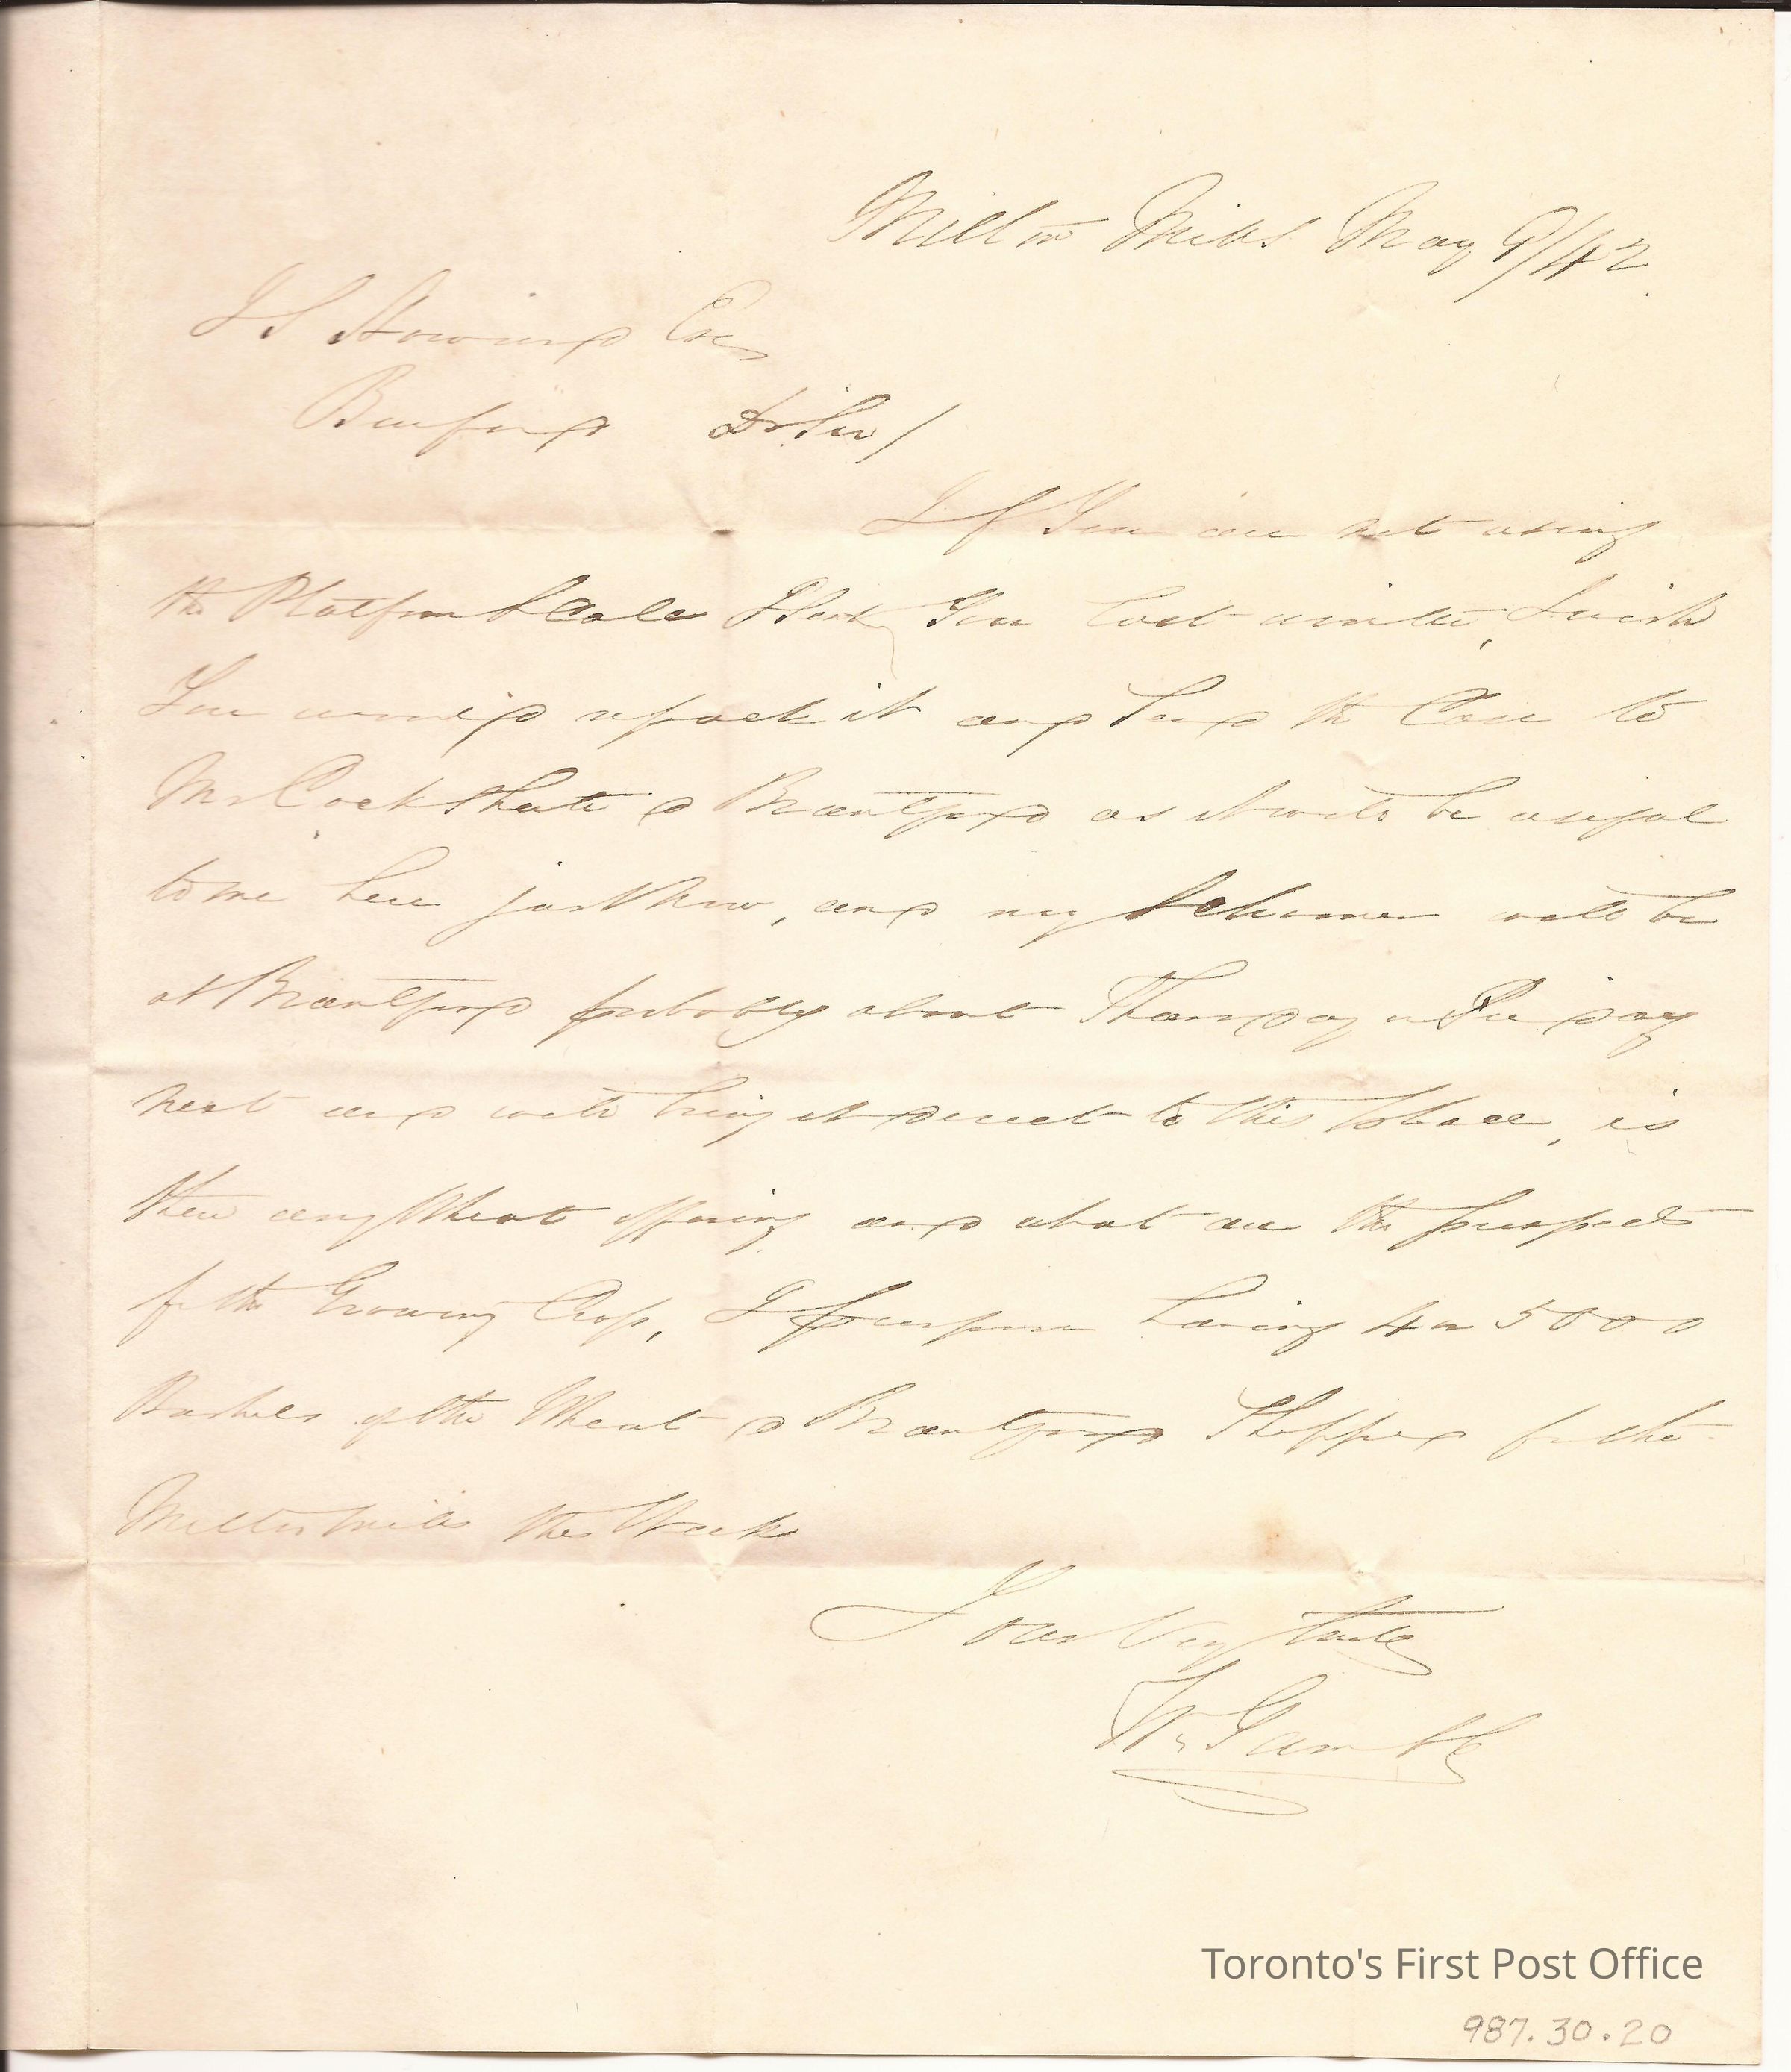 Milton Mills May 9/42.
J S Howard Esq
Burford Dr Sir/
If You are not using
the Platform Scale I lent You last winter, I wish
You would repack it and send the Case to
Mr Cockshutt @ Brantford as it will be useful
to me here just now, and my Schooner will be
at Brantford probably about Thursday or Friday
next and will bring it direct to this place, is
there any Wheat offering and what are the prospects
for the Growing Crop, I purpose having 4 or 5000
Bushels of the Wheat @ Brantford Shipped for the
Milton Mills this Week
Yours Very truly
Wm Gamble
Toronto's First Post Office
987.30.20